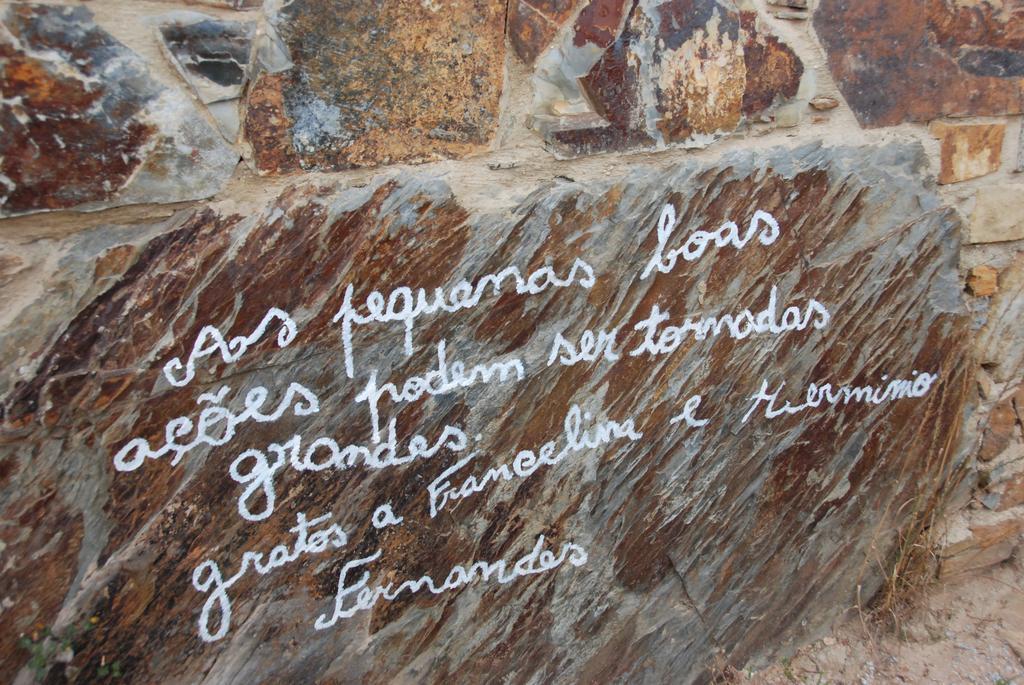 As pequenas boas
ações podem ser tornadas
grandes.
gratos a Francelina e Herminio
Fernandes